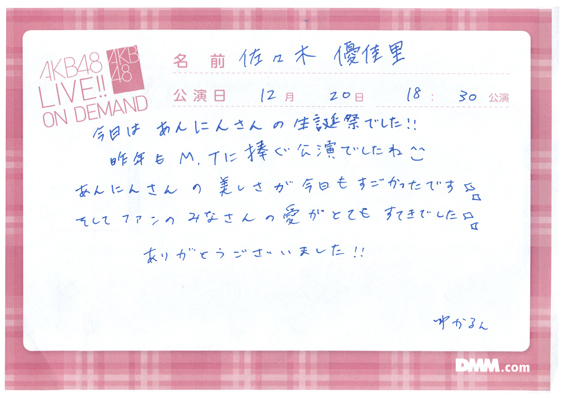 AKB48
LIVE!!
ON DEMAND
AKB
48
名前 佐々木 優佳里
公演日 12月 20日 18:30公演
今日は あんにんさんの生誕祭でした!!
昨年も M.Tに捧ぐ公演でしたね
あんにんさんの美しさが今日もすごかったです
そして ファンのみなさんの愛がとても すてきでした
ありがとうございました!!
ゆかるん
DMM.com